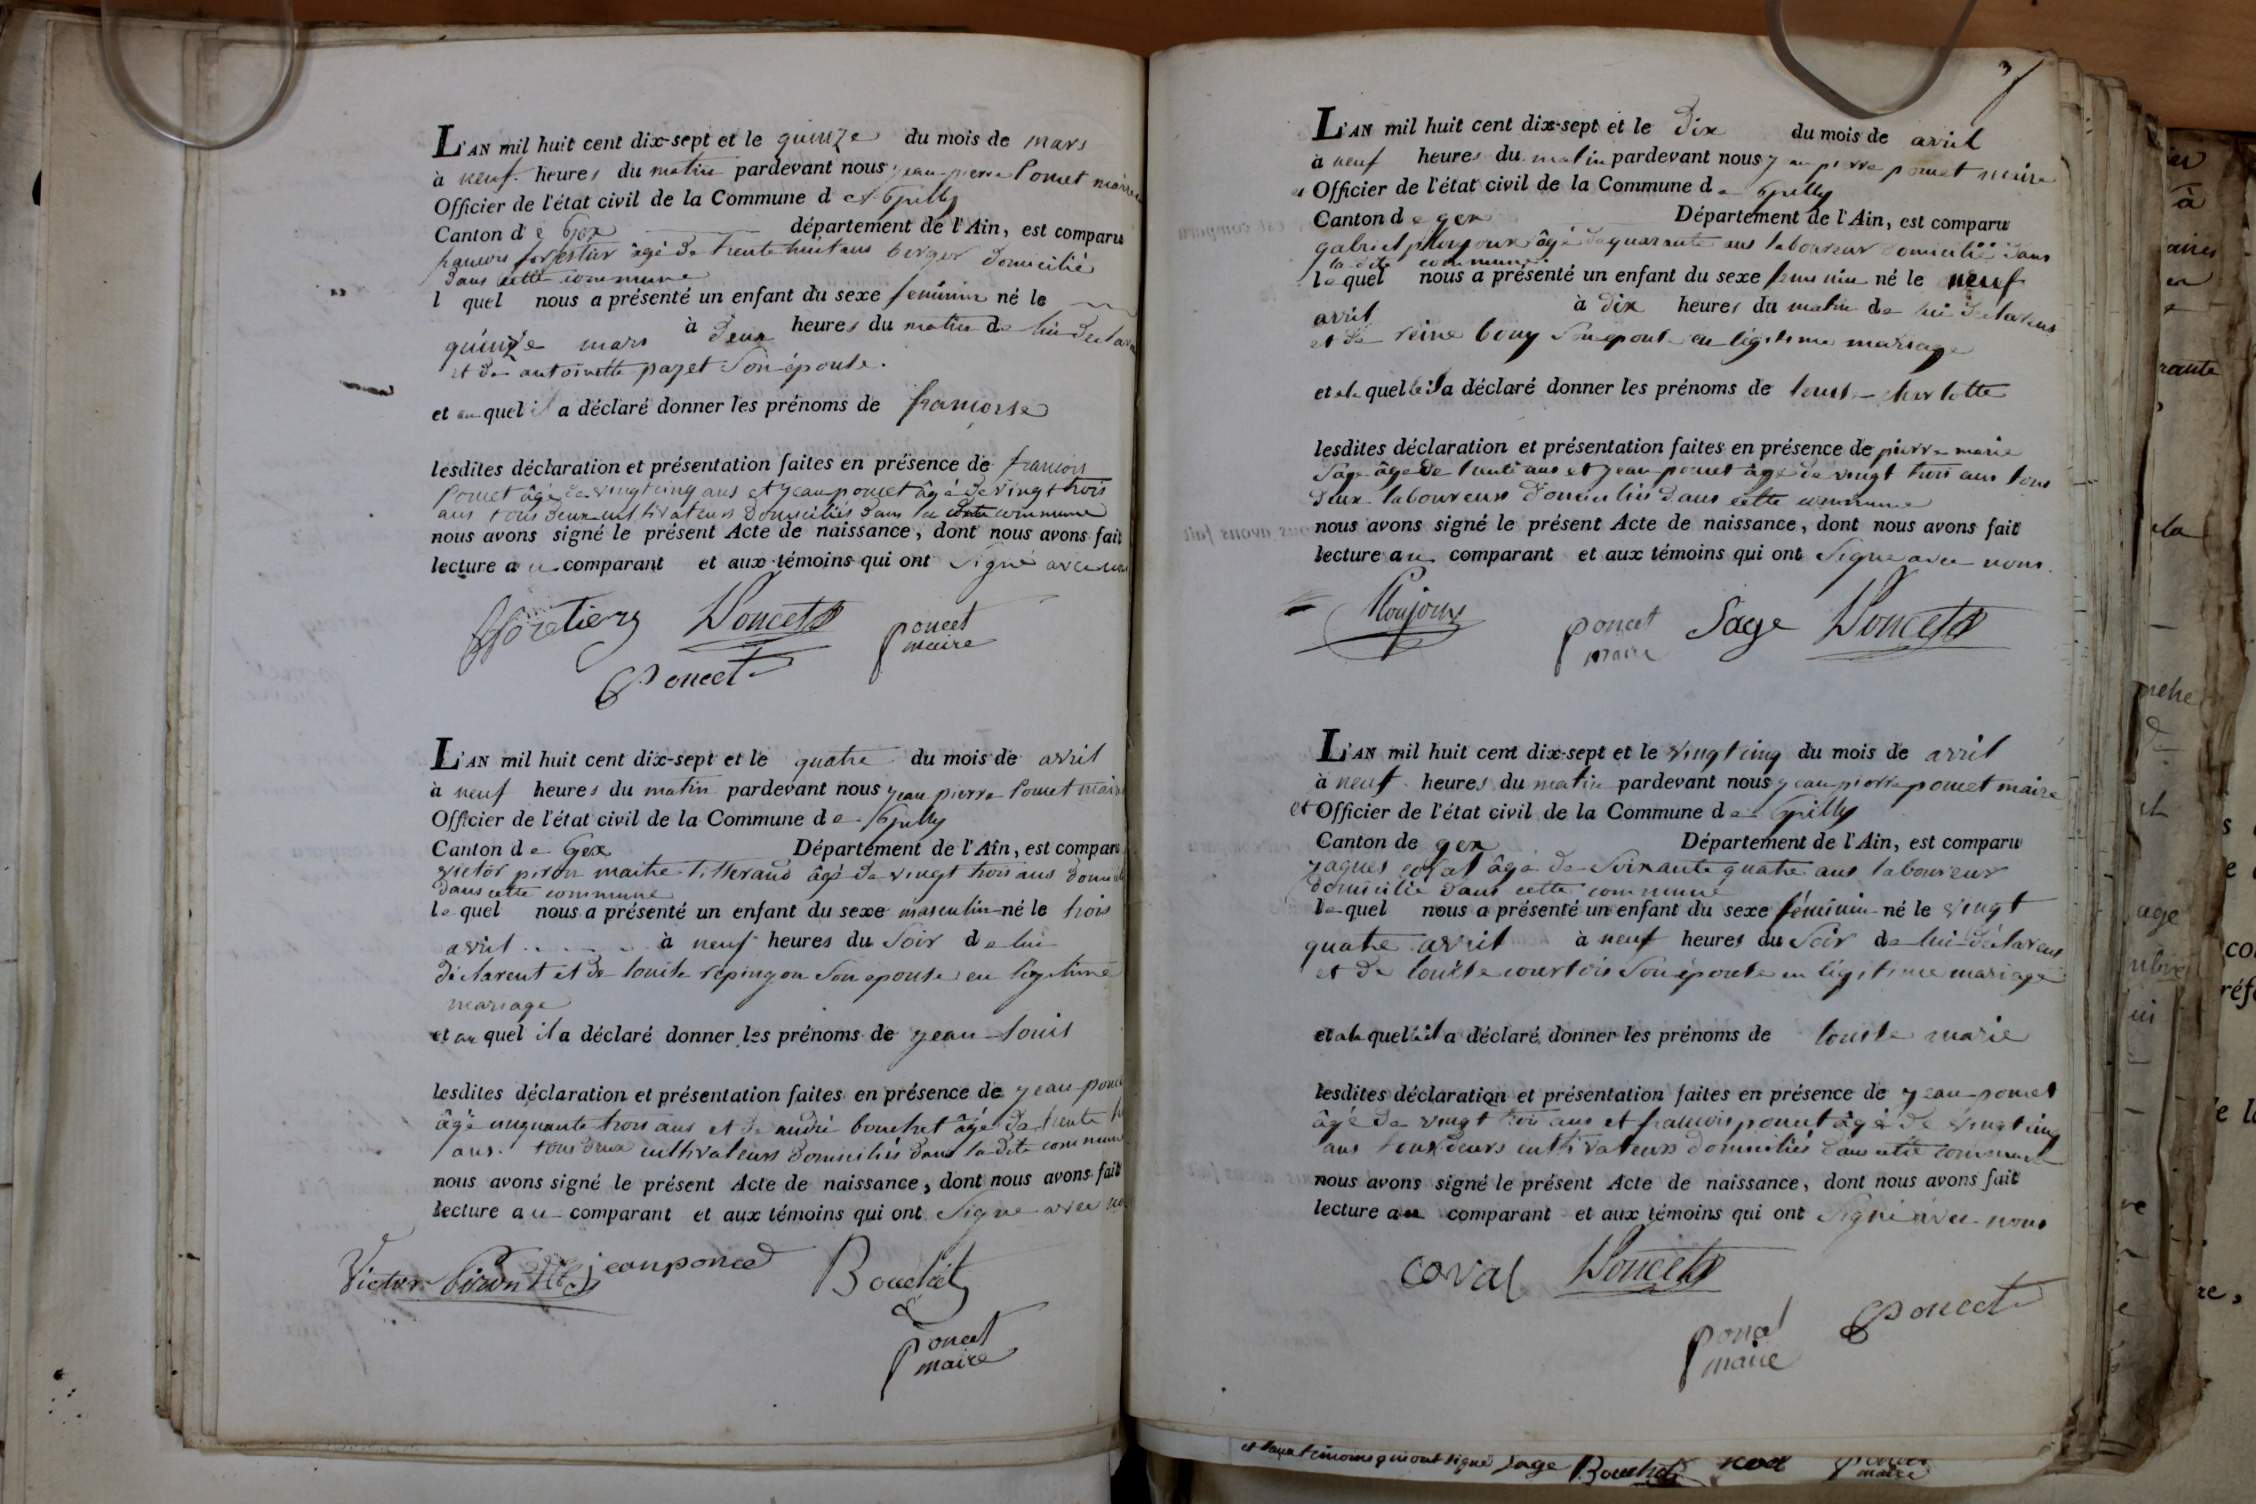 L'AN mil huit cent dix-sept et le quinze du mois de mars
à neuf heures du matin pardevant nous jean pierre Poncet maire
Officier de l'état civil de la Commune d
Canton de Gex département de l'Ain, est comparu
françois âgé de trente huit ans berger domicilié
dans cette commune
l quel nous a présenté un enfant du sexe feminin né le
quinze mars à deux heures du matin de lui
et de antoinette pazet son épouse.
et au quel il a déclaré donner les prénoms de françoise
lesdites déclaration et présentation faites en présence de françois
Poncet âgé de vingt cinq ans et jean poncet âgé de vingt trois
ans tous deux cultivateurs domiciliés dans commune
nous avons signé le présent Acte de naissance, dont nous avons fait
lecture au comparant et aux témoins qui ont signé avec
Poncet poncet
maire
Poncet
L'AN mil huit cent dix-sept et le quatre du mois de avril
à neuf heures du matin pardevant nous jean pierre Poncet maire
Officier de l'état civil de la Commune de
Canton de Gex Département de l'Ain, est comparu
victor piron maitre âgé de vingt trois ans
dans cette commune
le quel nous a présenté un enfant du sexe masculin né le trois
avril à neuf heures du soir de lui
déclarent et de louise son epouse en legitime
mariage
et au quel il a déclaré donner les prénoms de jean louis
lesdites déclaration et présentation faites en présence de jean
âgé cinquante trois ans et de andré bouchet âgé de trente
ans. tous deux cultivateurs domiciliés dans la dite commune
nous avons signé le présent Acte de naissance, dont nous avons fait
lecture au comparant et aux témoins qui ont signé avec
Victor jean poncet Bouchet
poncet
maire
3
L'AN mil huit cent dix-sept et le dix du mois de avril
à neuf heures du matin pardevant nous jean pierre poncet maire
et Officier de l'état civil de la Commune de
Canton de gex Département de l'Ain, est comparu
gabriel ploujoux âgé de quarante ans laboureur domicilié dans
la dite commune
le quel nous a présenté un enfant du sexe feminin né le neuf
avril à dix heures du matin de lui déclarent
et de reine bouy son epouse en légitime mariage
et a la quelle il a déclaré donner les prénoms de louise charlotte
lesdites déclaration et présentation faites en présence de pierre marie
sage âgé de ans et jean poncet âgé de vingt trois ans tous
deux laboureurs domiciliés dans cette commune
nous avons signé le présent Acte de naissance, dont nous avons fait
lecture au comparant et aux témoins qui ont signé avec nous.
Ploujoux poncet Sage Poncet
maire
L'AN mil huit cent dix-sept et le vingt cinq du mois de avril
à neuf heures du matin pardevant nous jean pierre poncet maire
et Officier de l'état civil de la Commune de
Canton de gex Département de l'Ain, est comparu
jaques coval âgé de soixante quatre ans laboureur
domicilié dans cette commune
le quel nous a présenté un enfant du sexe féminin né le vingt
quatre avril à neuf heures du soir de lui déclarent
et de louise courtois son épouse en légitime mariage
et a la quelle il a déclaré donner les prénoms de louise marie
lesdites déclaration et présentation faites en présence de jean poncet
âgé de vingt trois ans et françois poncet âgé de vingt cinq
ans tous deux cultivateurs domiciliés dans cette commune
nous avons signé le présent Acte de naissance, dont nous avons fait
lecture au comparant et aux témoins qui ont signé avec nous
coval Poncet
poncet Poncet
maire
et aux témoins qui ont signé Sage Bouchet poncet
maire